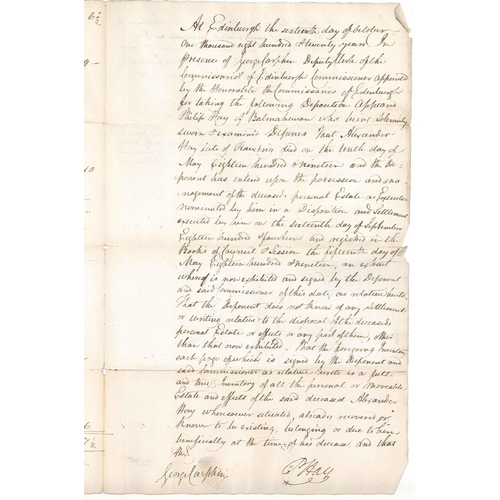 6½
9
10
6
7½
At Edinburgh the sixteenth day of October
One thousand eight hundred & twenty years In
presence of George Carphin Deputy Clerk of the
Commissariot of Edinburgh Commissioner appointed
by the Honorable the Commissaries of Edinburgh
for taking the following Deposition Appeared
Philip Hay of who being Solemnly
sworn & examined Depones That Alexander
Hay late of died on the tenth day of
May Eighteen hundred & nineteen and the De-
ponent has entered upon the possession and ma-
nagement of the deceased's personal Estate as Executor
nominated by him in a Disposition and Settlement
executed by him on the sixteenth day of September
Eighteen hundred & and registered in the
Books of Council & Session the fifteenth day of
May Eighteen hundred & nineteen, an extract
whereof is now exhibited and signed by the Deponent
and said Commissioner of this date, as relative hereto.
That the Deponent does not know of any settlement
or writing relative to the disposal of the deceased's
personal Estate or effects or any part of them, other
than that now exhibited. That the foregoing Inventory
each page of which is signed by the Deponent and
said Commissioner as relative hereto is a full
and true Inventory of all the personal or Moveable
Estate and effects of the said deceased Alexander
Hay wheresoever situated, already recovered or
known to be existing, belonging or due to him
beneficially at the time of his decease and that
the
George Carphin P. Hay